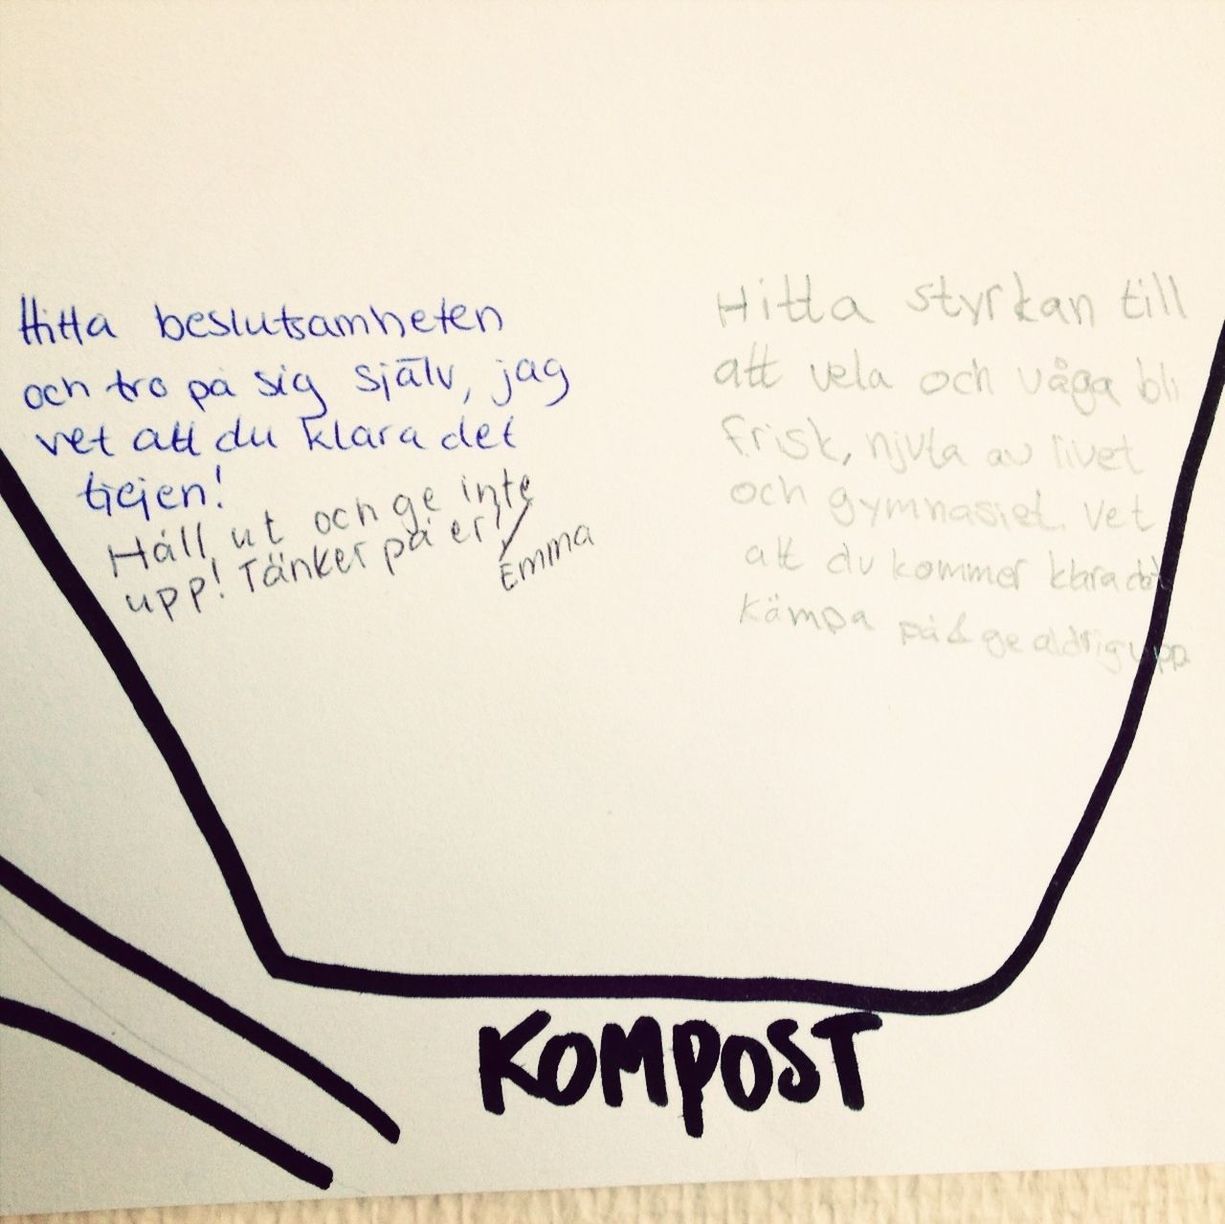 Hitta beslutsamheten
och tro på sig själv, jag
vet att du klara det
tjejen!
Håll ut och ge inte
upp! Tänker på er!
/Emma
Hitta styrkan till
att vela och våga bli
frisk, njuta av livet
och gymnasiet. Vet
att du kommer klara det
Kämpa på & ge aldrig upp
KOMPOST